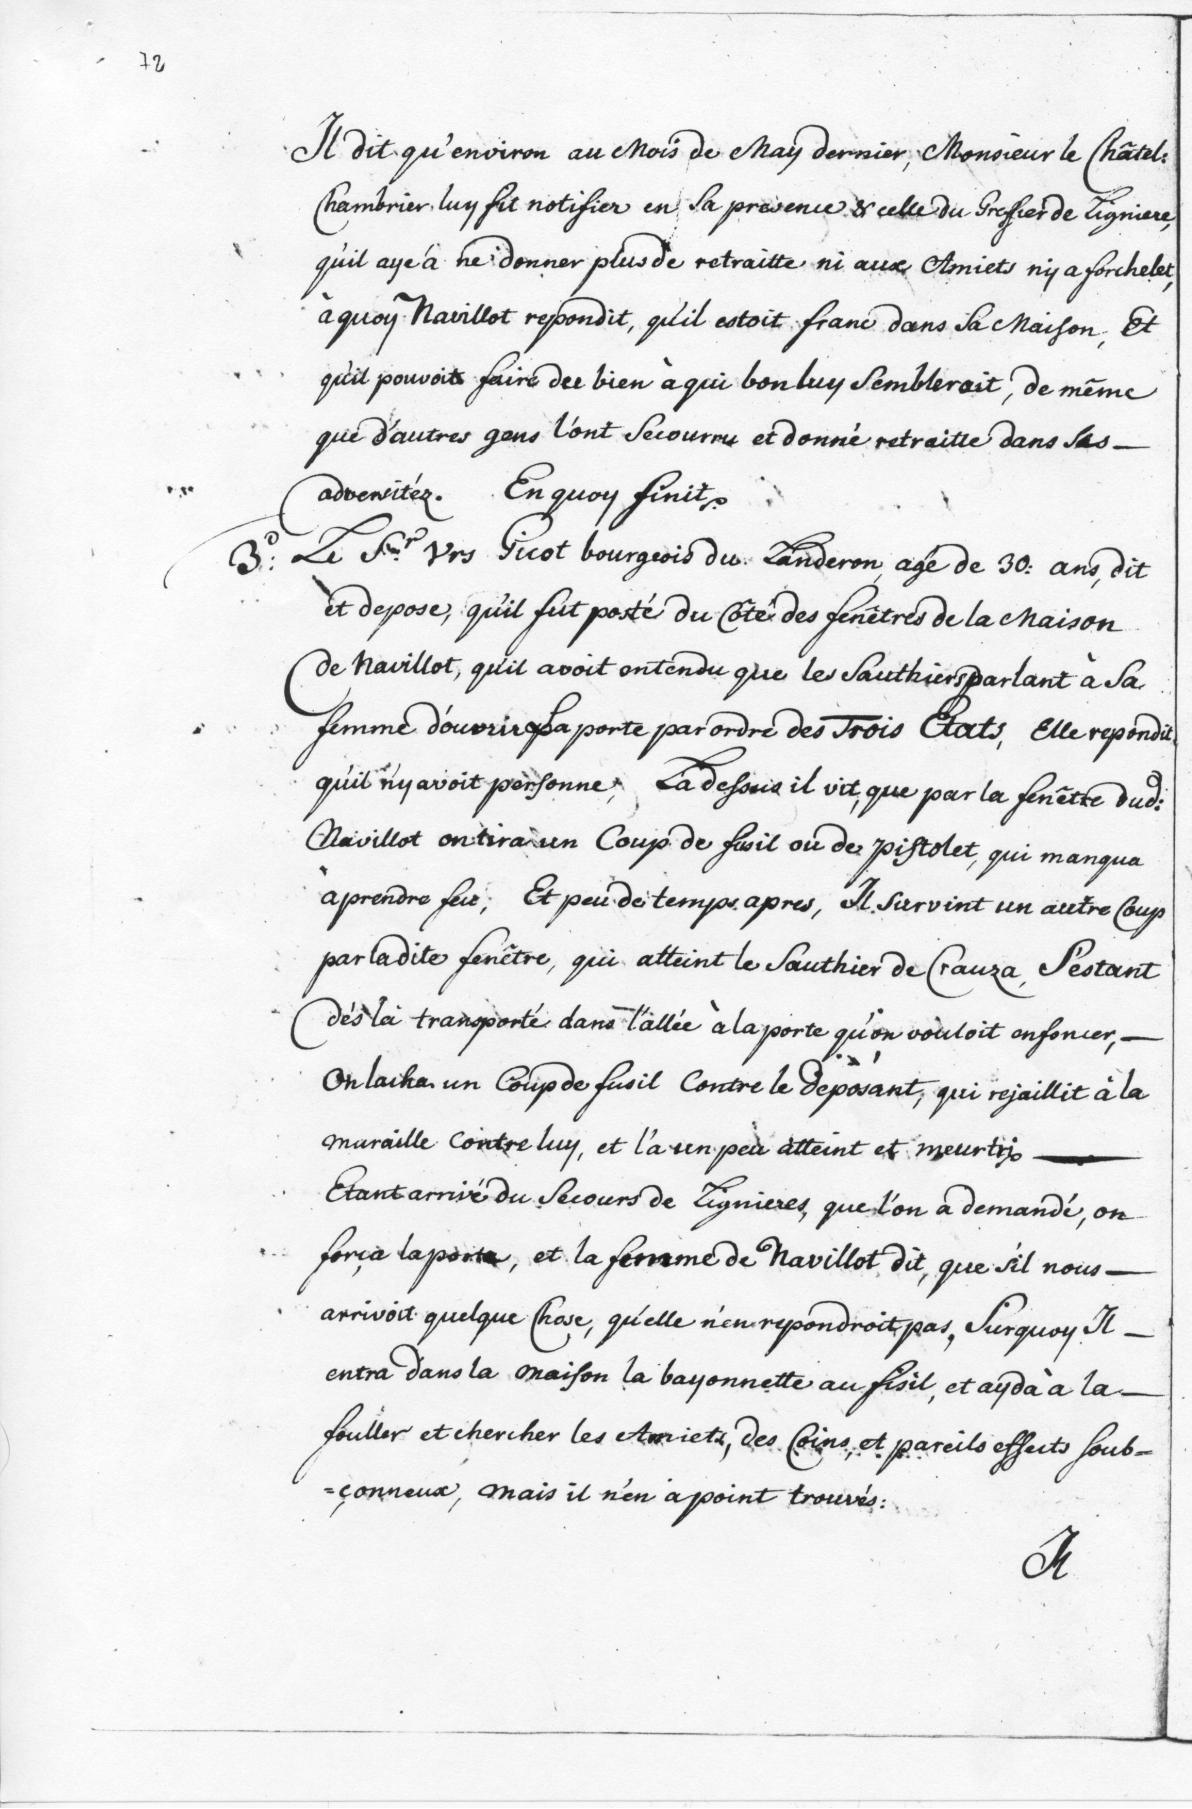 72
Il dit qu'environ au Mois de May dernier, Monsieur le Châtel:
Chambrier luy fit notifier en Sa presence & celle du Greffier de Ligniere,
qu'il aye à ne donner plus de retraitte ni aux Amiets n'y a forchelet,
à quoy Navillot repondit, qu'il estoit franc dans Sa Maison, Et
qu'il pouvoit faire du bien à qui bon luy Sembleroit, de même
que d'autres gens l'ont Secourru et donné retraitte dans Ses
adversitéz. En quoy finit.
3º: Le Sr. Vrs Gicot bourgeois du Landeron, agé de 30: ans, dit
et depose, qu'il fut posté du Côté des fenêtres de la Maison
de Navillot, qu'il avoit entendu que les Sauthiers parlant à Sa
femme d'ouvrir La porte par ordre des Trois Etats, Elle repondit
qu'il n'y avoit personne, La dessus il vit, que par la fenêtre dud:
Navillot on tira un Coup de fusil ou de pistolet, qui manqua
à prendre feu, Et peu de temps apres, Il Survint un autre Coup
par ladite fenêtre, qui atteint le Sauthier de Crauza, S'estant
dés là transporté dans l'allée à la porte qu'on vouloit enfoncer,
On lacha un Coup de fusil Contre le deposant, qui rejaillit à la
muraille Contre luy, et l'a un peu atteint et meurtri
Etant arrivé du Secours de Lignieres, que l'on a demandé, on
força la porte, et la femme de Navillot dit, que s'il nous
arrivoit quelque Chose, qu'elle n'en repondroit pas, Surquoy Il
entra dans la maison la bayonnette au fisil, et ayda à la
fouller et chercher les Amiets, des Coins, et pareils effects soub=
=çonneux, mais il n'en a point trouvés:
Il